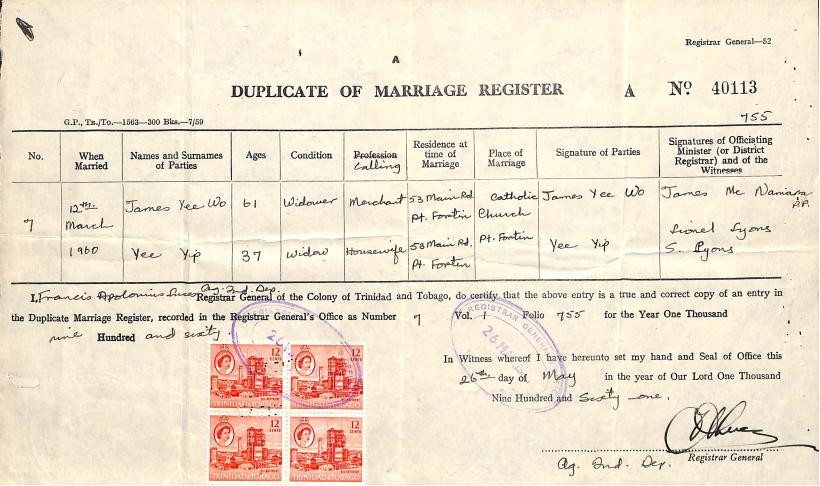 Registrar General—52
A
DUPLICATE OF MARRIAGE REGISTER A Nº 40113
G.P., TR./TO.—1563—300 Bks.—7/59
755
No. When Married Names and Surnames of Parties Ages Condition Profession Calling Residence at time of Marriage Place of Marriage Signature of Parties Signatures of Officiating Minister (or District Registrar) and of the Witnesses
7 12th March 1960 James Yee Wo 61 Widower Merchant 53 Main Rd. Pt. Fortin Catholic Church Pt. Fortin James Yee Wo James Mc Namara P.P.
Yee Yip 37 Widow Housewife 53 Main Rd. Pt. Fortin Yee Yip Lionel Lyons
S. Lyons
I, Francis Apolonius Ag. 2nd. Dep. Registrar General of the Colony of Trinidad and Tobago, do certify that the above entry is a true and correct copy of an entry in
the Duplicate Marriage Register, recorded in the Registrar General's Office as Number 7 Vol. 1 Folio 755 for the Year One Thousand
nine Hundred and sixty.
REGISTRAR GENERAL
26 MAY
In Witness whereof I have hereunto set my hand and Seal of Office this
26th day of May in the year of Our Lord One Thousand
Nine Hundred and Sixty one.
Ag. 2nd. Dep. Registrar General
12 CENTS
TRINIDAD & TOBAGO
12 CENTS
TRINIDAD & TOBAGO
12 CENTS
TRINIDAD & TOBAGO
12 CENTS
TRINIDAD & TOBAGO